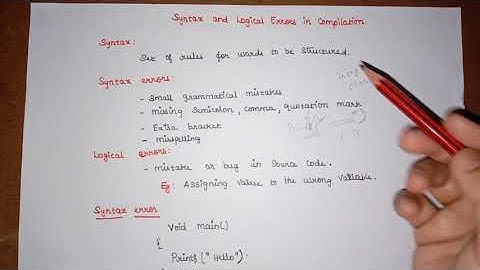 Syntax and Logical Errors in Compilation
Syntax:
Set of rules for words to be structured.
Syntax errors:
- Small grammatical mistakes
- missing Semicolon, comma, quotation mark
- Extra bracket
- misspelling
Logical errors:
- mistake or bug in Source code.
Eg: Assigning value to the wrong variable.
Syntax error
Void main()
{
Printf("Hello").